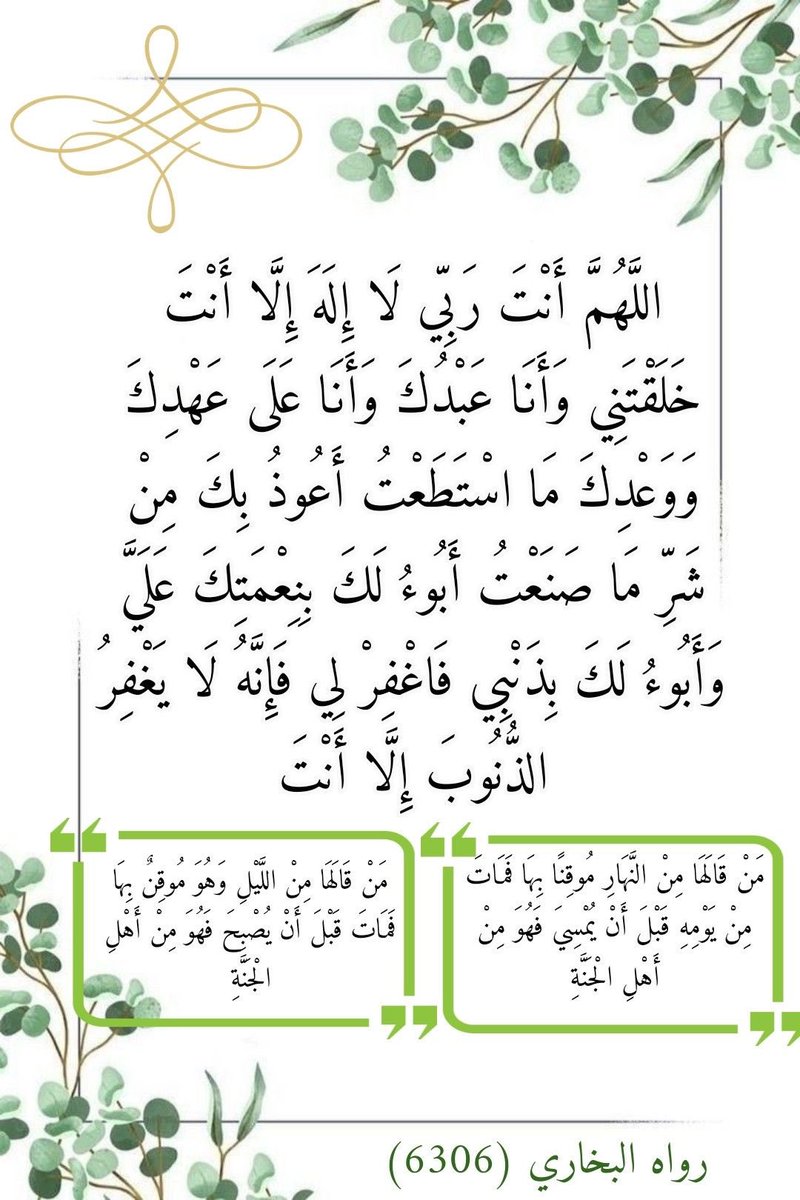 اللَّهُمَّ أَنْتَ رَبِّي لَا إِلَهَ إِلَّا أَنْتَ
خَلَقْتَنِي وَأَنَا عَبْدُكَ وَأَنَا عَلَى عَهْدِكَ
وَوَعْدِكَ مَا اسْتَطَعْتُ أَعُوذُ بِكَ مِنْ
شَرِّ مَا صَنَعْتُ أَبُوءُ لَكَ بِنِعْمَتِكَ عَلَيَّ
وَأَبُوءُ لَكَ بِذَنْبِي فَاغْفِرْ لِي فَإِنَّهُ لَا يَغْفِرُ
الذُّنُوبَ إِلَّا أَنْتَ
مَنْ قَالَهَا مِنْ النَّهَارِ مُوقِنًا بِهَا فَمَاتَ
مِنْ يَوْمِهِ قَبْلَ أَنْ يُمْسِيَ فَهُوَ مِنْ
أَهْلِ الْجَنَّةِ
مَنْ قَالَهَا مِنْ اللَّيْلِ وَهُوَ مُوقِنٌ بِهَا
فَمَاتَ قَبْلَ أَنْ يُصْبِحَ فَهُوَ مِنْ أَهْلِ
الْجَنَّةِ
رواه البخاري (6306)